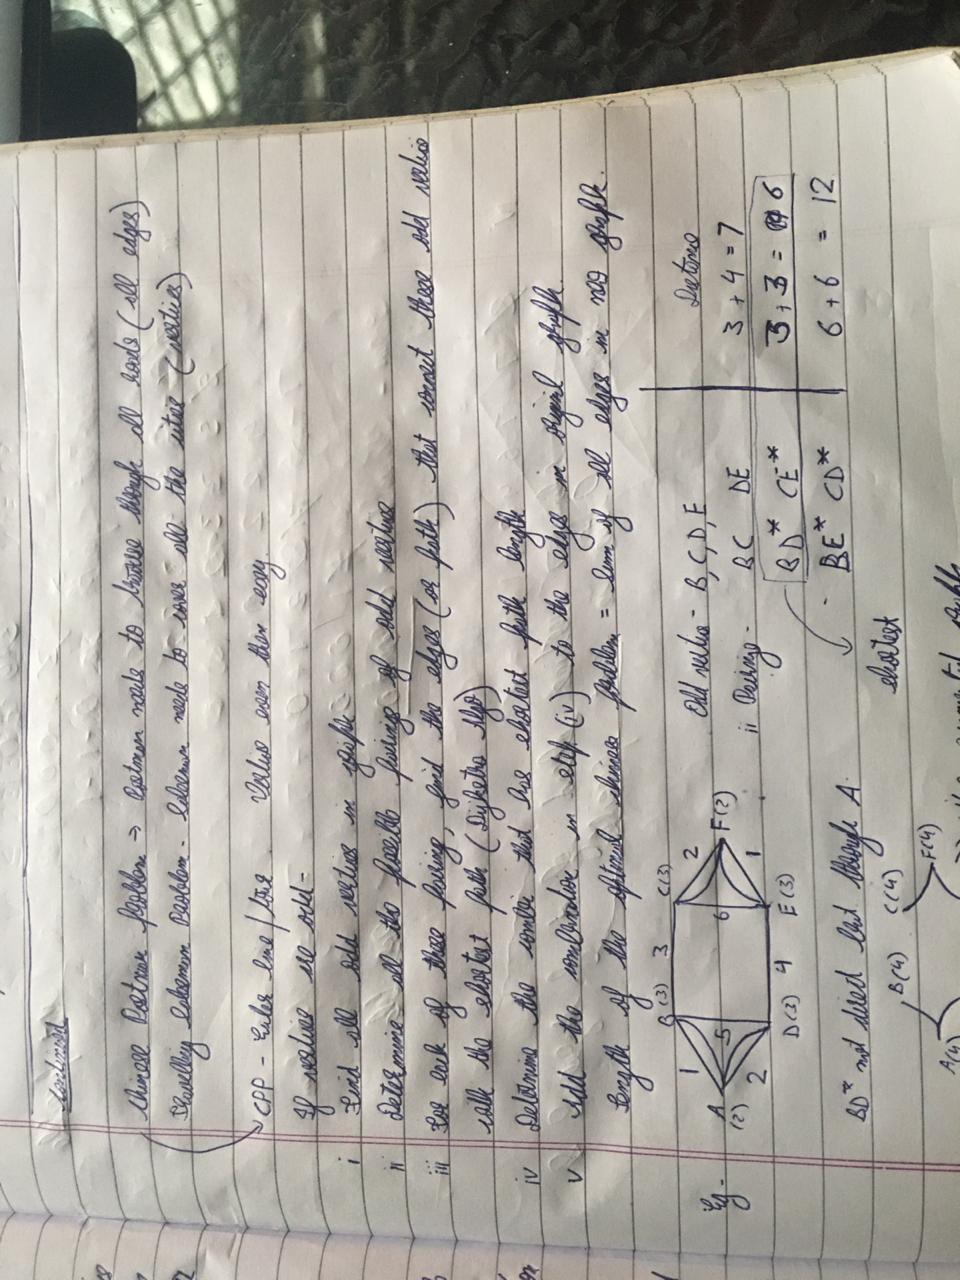 Continued
Chinese Postman problem ⇒ Postman needs to traverse through all roads (all edges)
Travelling salesman Problem - Salesman need to cover all the cities (vertices)
CPP - Euler line / tour Valus even then easy
If vertices are odd -
i Find all odd vertices in graph
ii Determine all the possible pairings of odd vertices
iii For each of these pairing, find the edges (or path) that connect these odd vertices
with the shortest path (Dijkstra Algo)
iv Determine the combi that has shortest path length
v Add the combination in step (iv) to the edges in original graph
Length of the optimal chinese problem = Sum of all edges in new graph.
Eg -
A (2)
B (3)
C (3)
D (3)
E (3)
F (2)
1 3 2
5 6
2 4 1
Odd nulus - B, C, D, E
ii Pairings - Distance
BC DE 3 + 4 = 7
BD* CE* 3 + 3 = 6
BE* CD* 6 + 6 = 12
shortest
BD* not direct but through A.
B(4) C(4)
A(4) F(4)